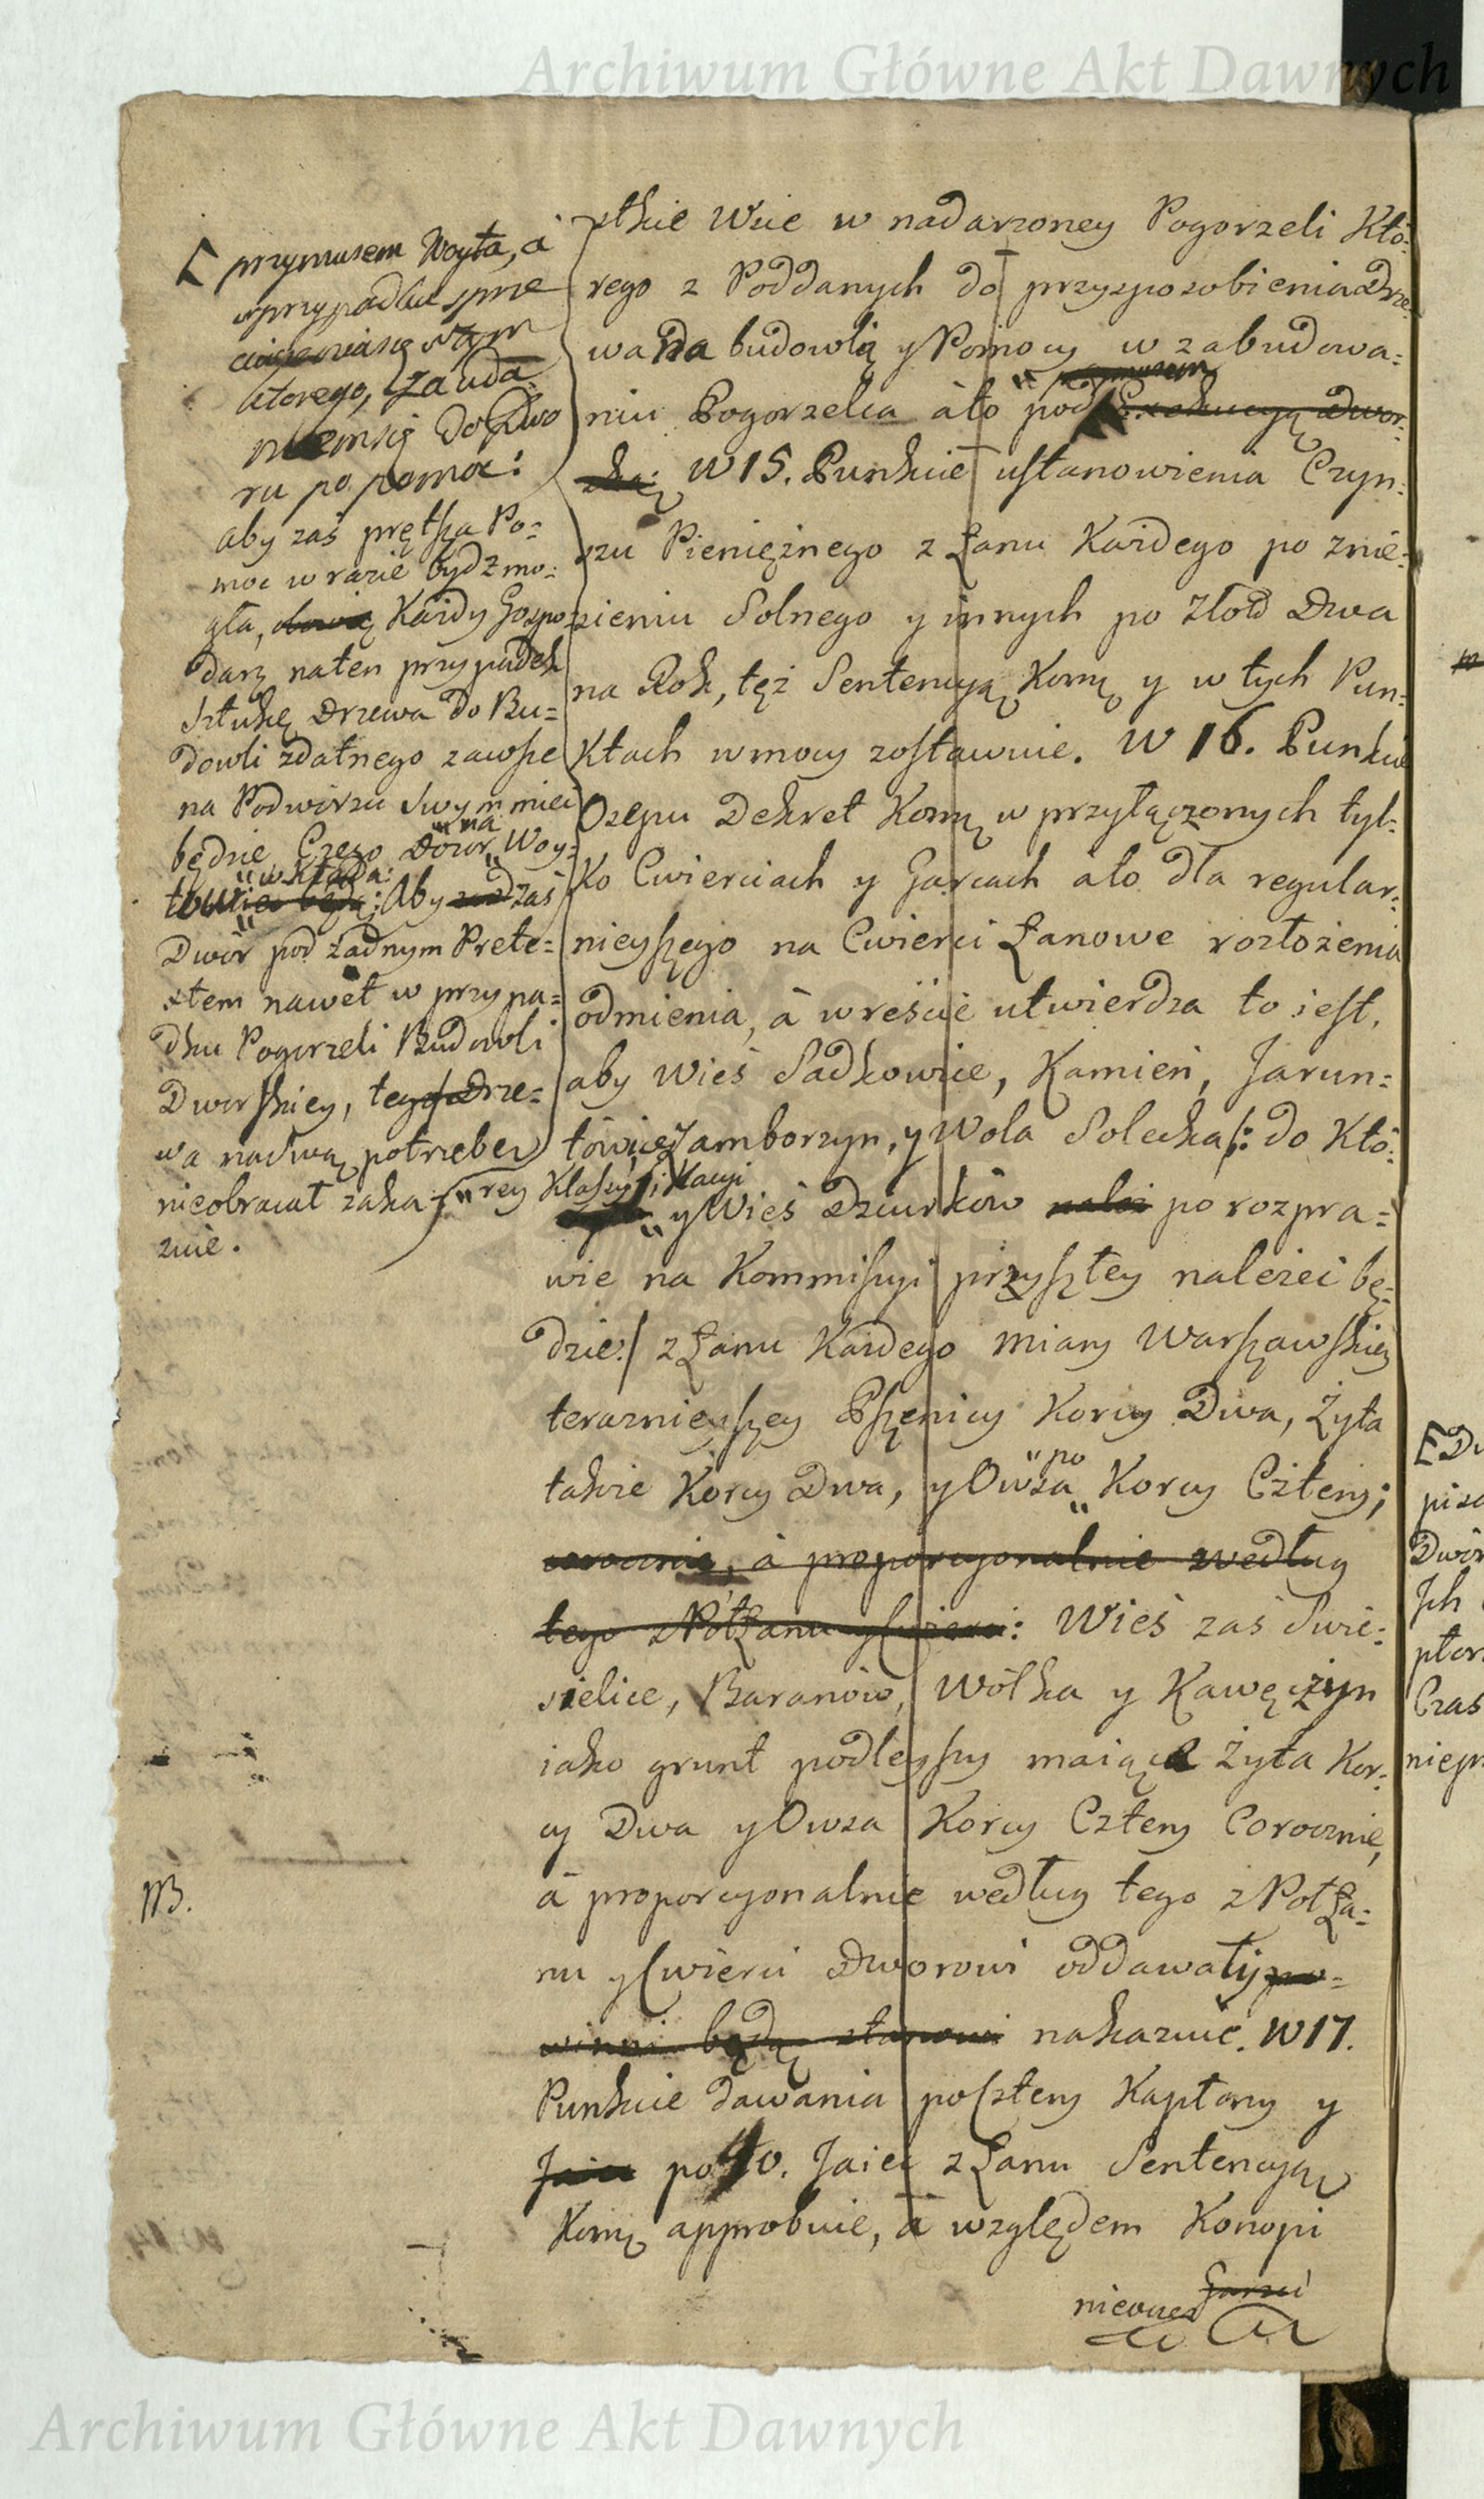 Archiwum Główne Akt Dawnych
przymusem Woyta, a
wprzypadku sprze
ciwienia się w tym
ktorego, za uda
niem się do Dwo
ru po pomoc:
aby zaś prętsza Po=
moc w razie bydz mo:
gła, Każdy Gospo
darz na ten przypadek
Sztukę Drzewa do Bu=
dowli zdatnego zawsze
na Podwórzu Swym mieć
będzie Czego Dowór na Woy=
w Kłada:
będą; Aby zaś
Dwór pod żadnym Prete=
xtem nawet w przypa=
dku Pogorzeli Budowli
Dworskiey, tego Drze=
wa na swą potrzebę
nieobracał zaka=
zuie.
NB.
stkie Wsie w nadarzoney Pogorzeli Któ=
rego z Poddanych do przysposobienia Drze
wa na budowlą y Pomocy w zabudowa=
niu Pogorzelca áto pod Exekucyą Dwor=
ską; W 15. Punkcie ustanowienia Czyn=
szu Pieniężnego z Łanu Każdego po znie=
sieniu Solnego y innych po Złott Dwa
na Rok, też Sentencyą Komą y w tych Pun=
Ktach w mocy zostawuie. W 16. Punkcie
Osepu Dekret Komą w przyłączonych tyl=
ko Cwierciach y Garcach ato dla regular=
nieyszego na Cwierci Łanowe rozłożenia
odmienia, á w reście utwierdza to iest,
aby Wieś Sadkowice, Kamień, Jarun=
tówice, Zamborzyn, y Wola Solecka /: do Któ=
rey Klassyfikacyi
y Wieś Dziurków należ po rozpra=
wie na Kommissyi przyszłey należeć bę=
dzie:/ z Łanu Każdego miary Warszawskiey
teraznieyszey Pszenicy Korcy Dwa, Żyta
także Korcy Dwa, y Owsa po Korcy Cztery;
corocznie, á proporcyonalnie według
tego z Pół Łanu y Cwierci: Wieś zaś Swie=
sielice, Baranów, Wólka y Kawęczyn
iako grunt podleyszy maiące Żyta Kor=
cy Dwa y Owsa Korcy Cztery Corocznie,
á proporcyonalnie według tego z Poł Ła=
nu y Cwierci Dworowi oddawały po=
winni będą stanowi nakazuie. W 17.
Punkcie dawania po Cztery Kapłony y
Jaiec po 40. Jaiec z Łanu Sentencyą
Komą approbuie, á względem Konopi
Garści
Archiwum Główne Akt Dawnych